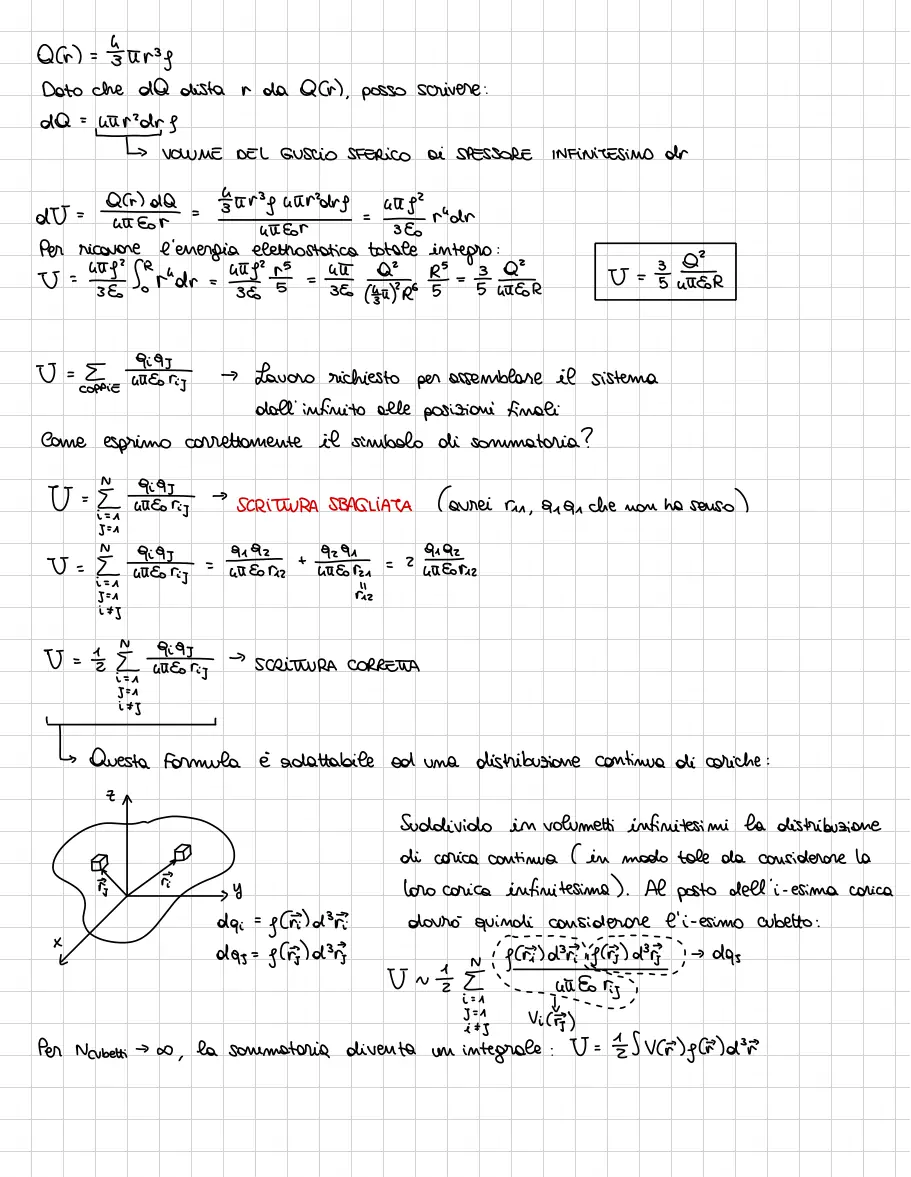 Q(r) = 4/3 π r³ ρ
Dato che dQ dista r da Q(r), posso scrivere:
dQ = 4πr²dr ρ
↳ VOLUME DEL GUSCIO SFERICO DI SPESSORE INFINITESIMO dr
dU = Q(r) dQ / 4πε₀r = 4/3 πr³ρ 4πr²drρ / 4πε₀r = 4πρ²/3ε₀ r⁴dr
Per ricavare l'energia elettrostatica totale integro:
U = 4πρ²/3ε₀ ∫₀ᴿ r⁴dr = 4πρ²/3ε₀ r⁵/5 = 4π/3ε₀ Q²/(4/3 π)²R⁶ R⁵/5 = 3/5 Q²/4πε₀R
U = 3/5 Q²/4πε₀R
U = Σ COPPIE qᵢqⱼ/4πε₀rᵢⱼ → Lavoro richiesto per assemblare il sistema
dall'infinito alle posizioni finali
Come esprimo correttamente il simbolo di sommatoria?
U = Σ N i=1 J=1 qᵢqⱼ/4πε₀rᵢⱼ → SCRITTURA SBAGLIATA (avrei r₁₁, q₁q₁ che non ha senso)
U = Σ N i=1 J=1 i≠J qᵢqⱼ/4πε₀rᵢⱼ = q₁q₂/4πε₀r₁₂ + q₂q₁/4πε₀r₂₁ = 2 q₁q₂/4πε₀r₁₂
= r₁₂
U = 1/2 Σ N i=1 J=1 i≠J qᵢqⱼ/4πε₀rᵢⱼ → SCRITTURA CORRETTA
↳ Questa formula è adattabile ad una distribuzione continua di cariche:
z
y
x
r⃗ⱼ
r⃗ᵢ
dqᵢ = ρ(r⃗ᵢ)d³r⃗ᵢ
dqⱼ = ρ(r⃗ⱼ)d³r⃗ⱼ
Suddivido in volumetti infinitesimi la distribuzione
di carica continua (in modo tale da considerare la
loro carica infinitesima). Al posto dell'i-esima carica
dovrò quindi considerare l'i-esimo cubetto:
U ~ 1/2 Σ N i=1 J=1 i≠J ρ(r⃗ᵢ)d³r⃗ᵢ ρ(r⃗ⱼ)d³r⃗ⱼ / 4πε₀rᵢⱼ → dqⱼ
Vᵢ(r⃗ⱼ)
Per Ncubetti → ∞, la sommatoria diventa un integrale: U = 1/2 ∫V(r⃗)ρ(r⃗)d³r⃗